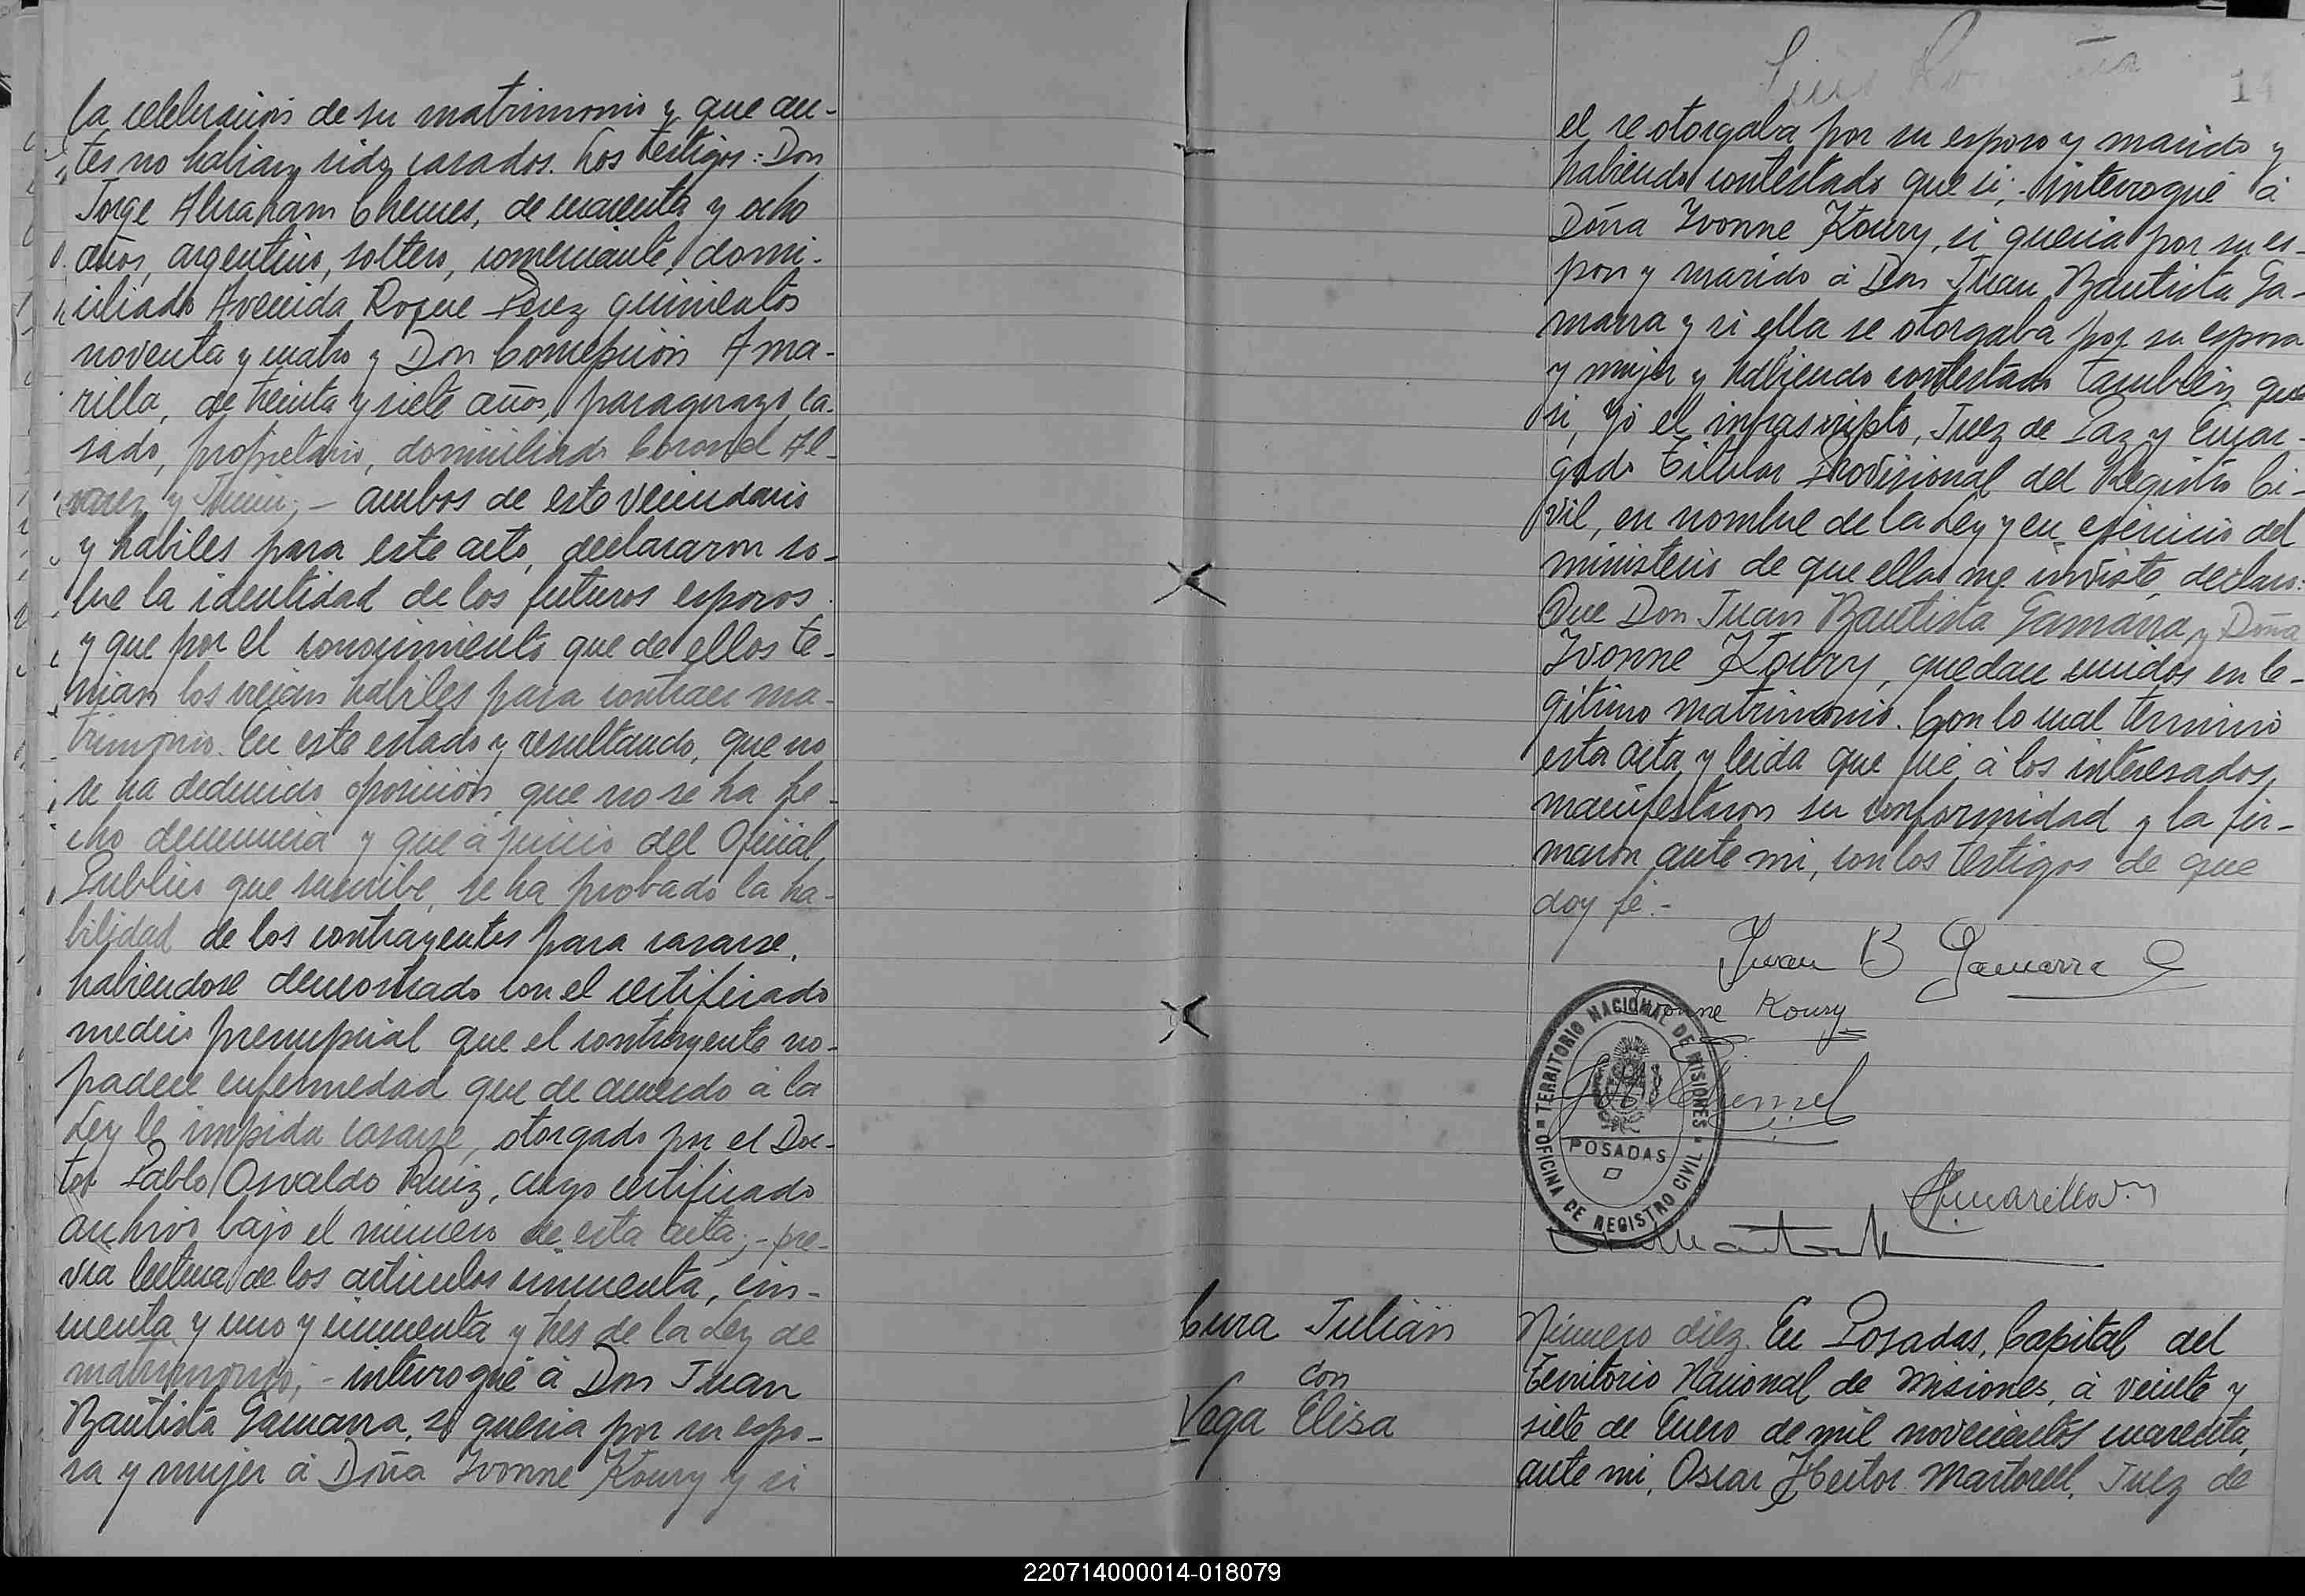 la celebración de su matrimonio y que an-
tes no habian sido casados. Los testigos: Don
Jorge Abraham Chemes, de cuarenta y ocho
años, argentino, soltero, comerciante, domi-
ciliado Avenida Roque Perez quinientos
noventa y cuatro y Don Concepción Ama-
rilla, de treinta y siete años, paraguayo, ca-
sado, propietario, domiciliado Coronel Al-
varez y Junin; - ambos de este vecindario
y habiles para este acto, declararon so-
bre la identidad de los futuros esposos
y que por el conocimiento que de ellos te-
nian los creian habiles para contraer ma-
trimonio. En este estado y resultando, que no
se ha deducido oposición, que no se ha he-
cho denuncia y que á juicio del Oficial
Publico que suscribe, se ha probado la ha-
bilidad de los contrayentes para casarse,
habiendose demostrado con el certificado
medico prenupcial que el contrayente no
padece enfermedad que de acuerdo á la
Ley le impida casarse, otorgado por el Doc-
tor Pablo Osvaldo Ruiz, cuyo certificado
archivo bajo el número de esta acta; - pre-
via lectura de los articulos cincuenta, cin-
cuenta y uno y cincuenta y tres de la Ley de
matrimonio; - interrogué á Don Juan
Bautista Gamarra, si queria por su espo-
sa y mujer á Doña Ivonne Koury y si
14
el se otorgaba por su esposo y marido y
habiendo contestado que si; - interrogué á
Doña Ivonne Koury, si queria por su es-
poso y marido á Don Juan Bautista Ga-
marra y si ella se otorgaba por su esposa
y mujer y habiendo contestado también que
si, Yó el infrascripto, Juez de Paz y Encar-
gado Titular Provisional del Registro Ci-
vil, en nombre de la Ley y en ejercicio del
ministerio de que ella me inviste, declaro:
Que Don Juan Bautista Gamarra y Doña
Ivonne Koury, quedan unidos en le-
gitimo matrimonio. Con lo cual terminó
esta acta y leida que fué á los interesados,
manifestaron su conformidad y la fir-
maron ante mi, con los testigos de que
doy fé.-
Juan B Gamarra
Ivonne Koury
TERRITORIO NACIONAL DE MISIONES
POSADAS
OFICINA DE REGISTRO CIVIL
Cura Julián
con
Vega Elisa
Número diez. En Posadas, Capital del
Territorio Nacional de Misiones, á veinte y
siete de Enero de mil novecientos cuarenta,
ante mi, Oscar Hector Martorell, Juez de
220714000014-018079